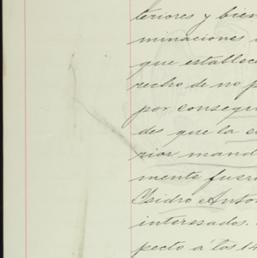 teriores y bien
minaciones
que establec
recho de no p
por consegu
des que la
rior mand
mente fuer
Isidro Anto
interesados.
pecto a los 14